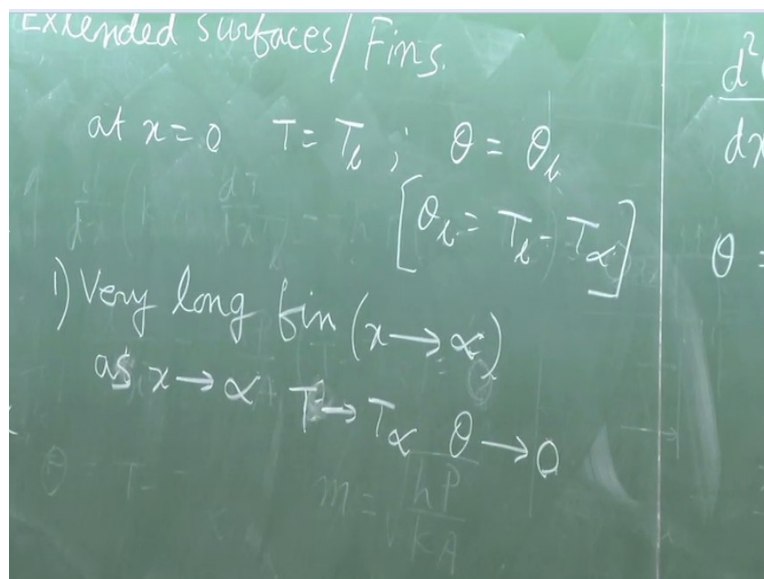 Extended surfaces/Fins.
at x = 0 T = T_b ; θ = θ_b
[θ_b = T_b - T_∝]
1) Very long fin (x → ∝)
as x → ∝ T → T_∝ θ → 0
θ = T -
m = √(hP/kA)
d²
dx
θ =